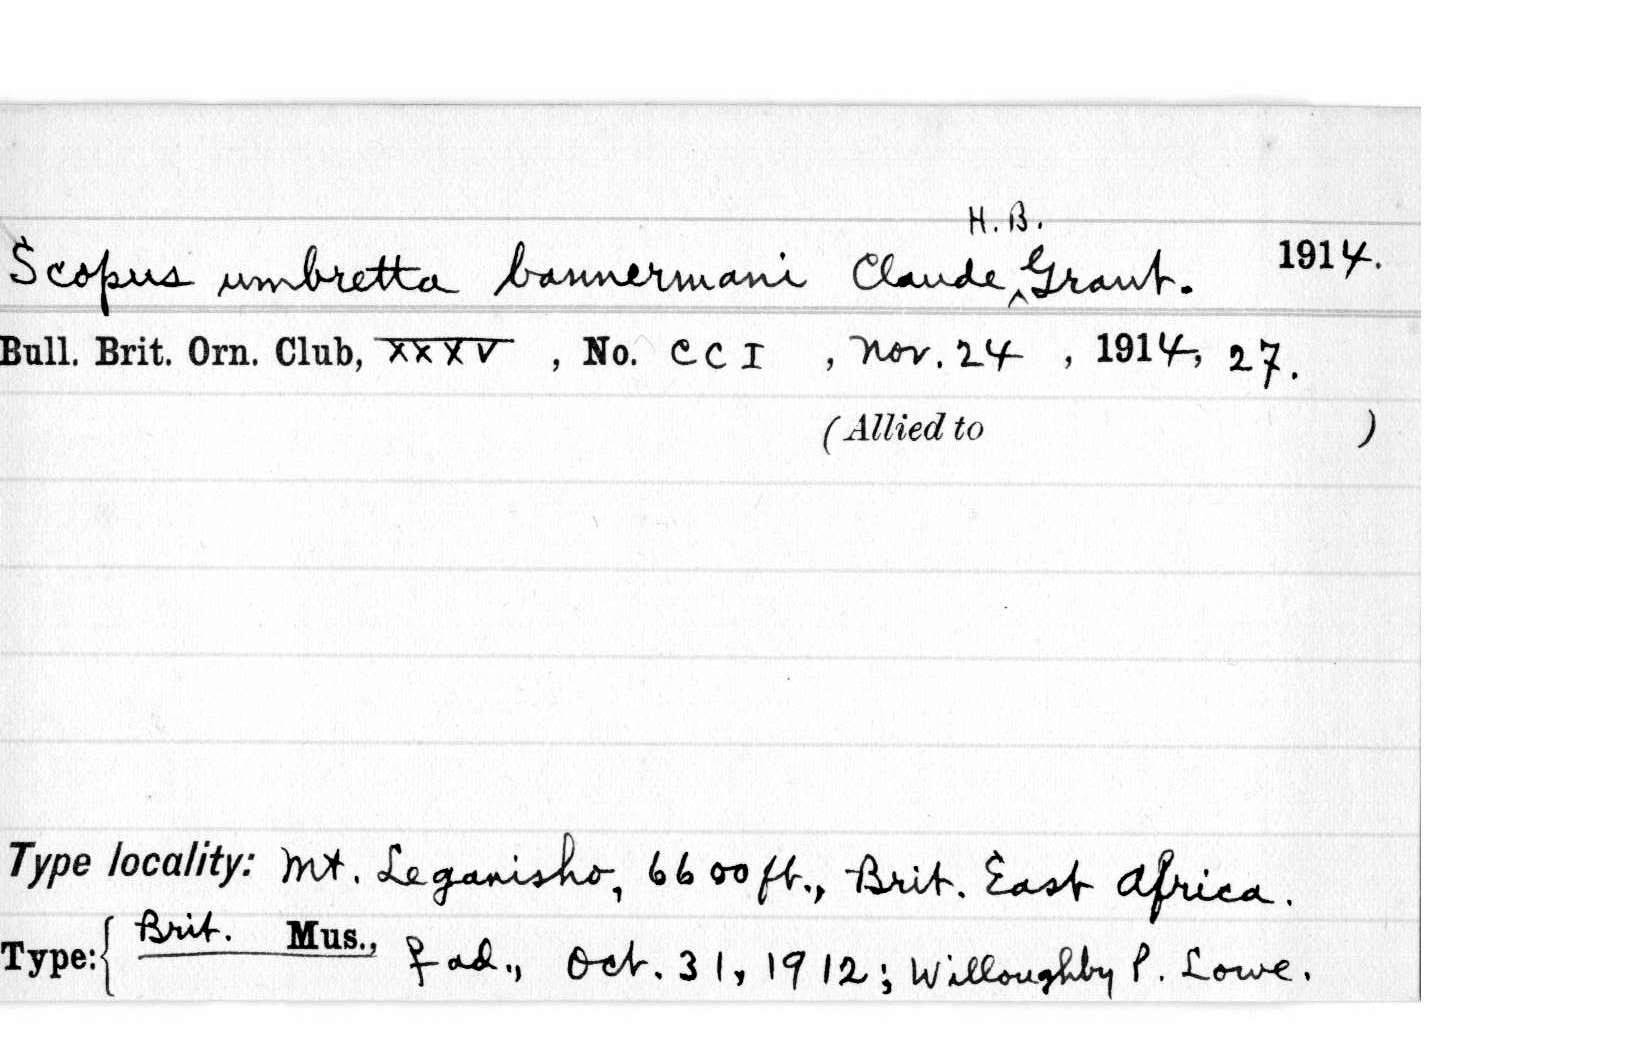 H. B.
Scopus umbretta bannermani Claude ‸ Grant. 1914.
Bull. Brit. Orn. Club, XXXV , No. CCI , Nov. 24 , 1914, 27.
(Allied to )
Type locality: Mt. Leganisho, 6600 ft., Brit. East Africa.
Type: { Brit. Mus., ♀ ad., Oct. 31, 1912; Willoughby P. Lowe.